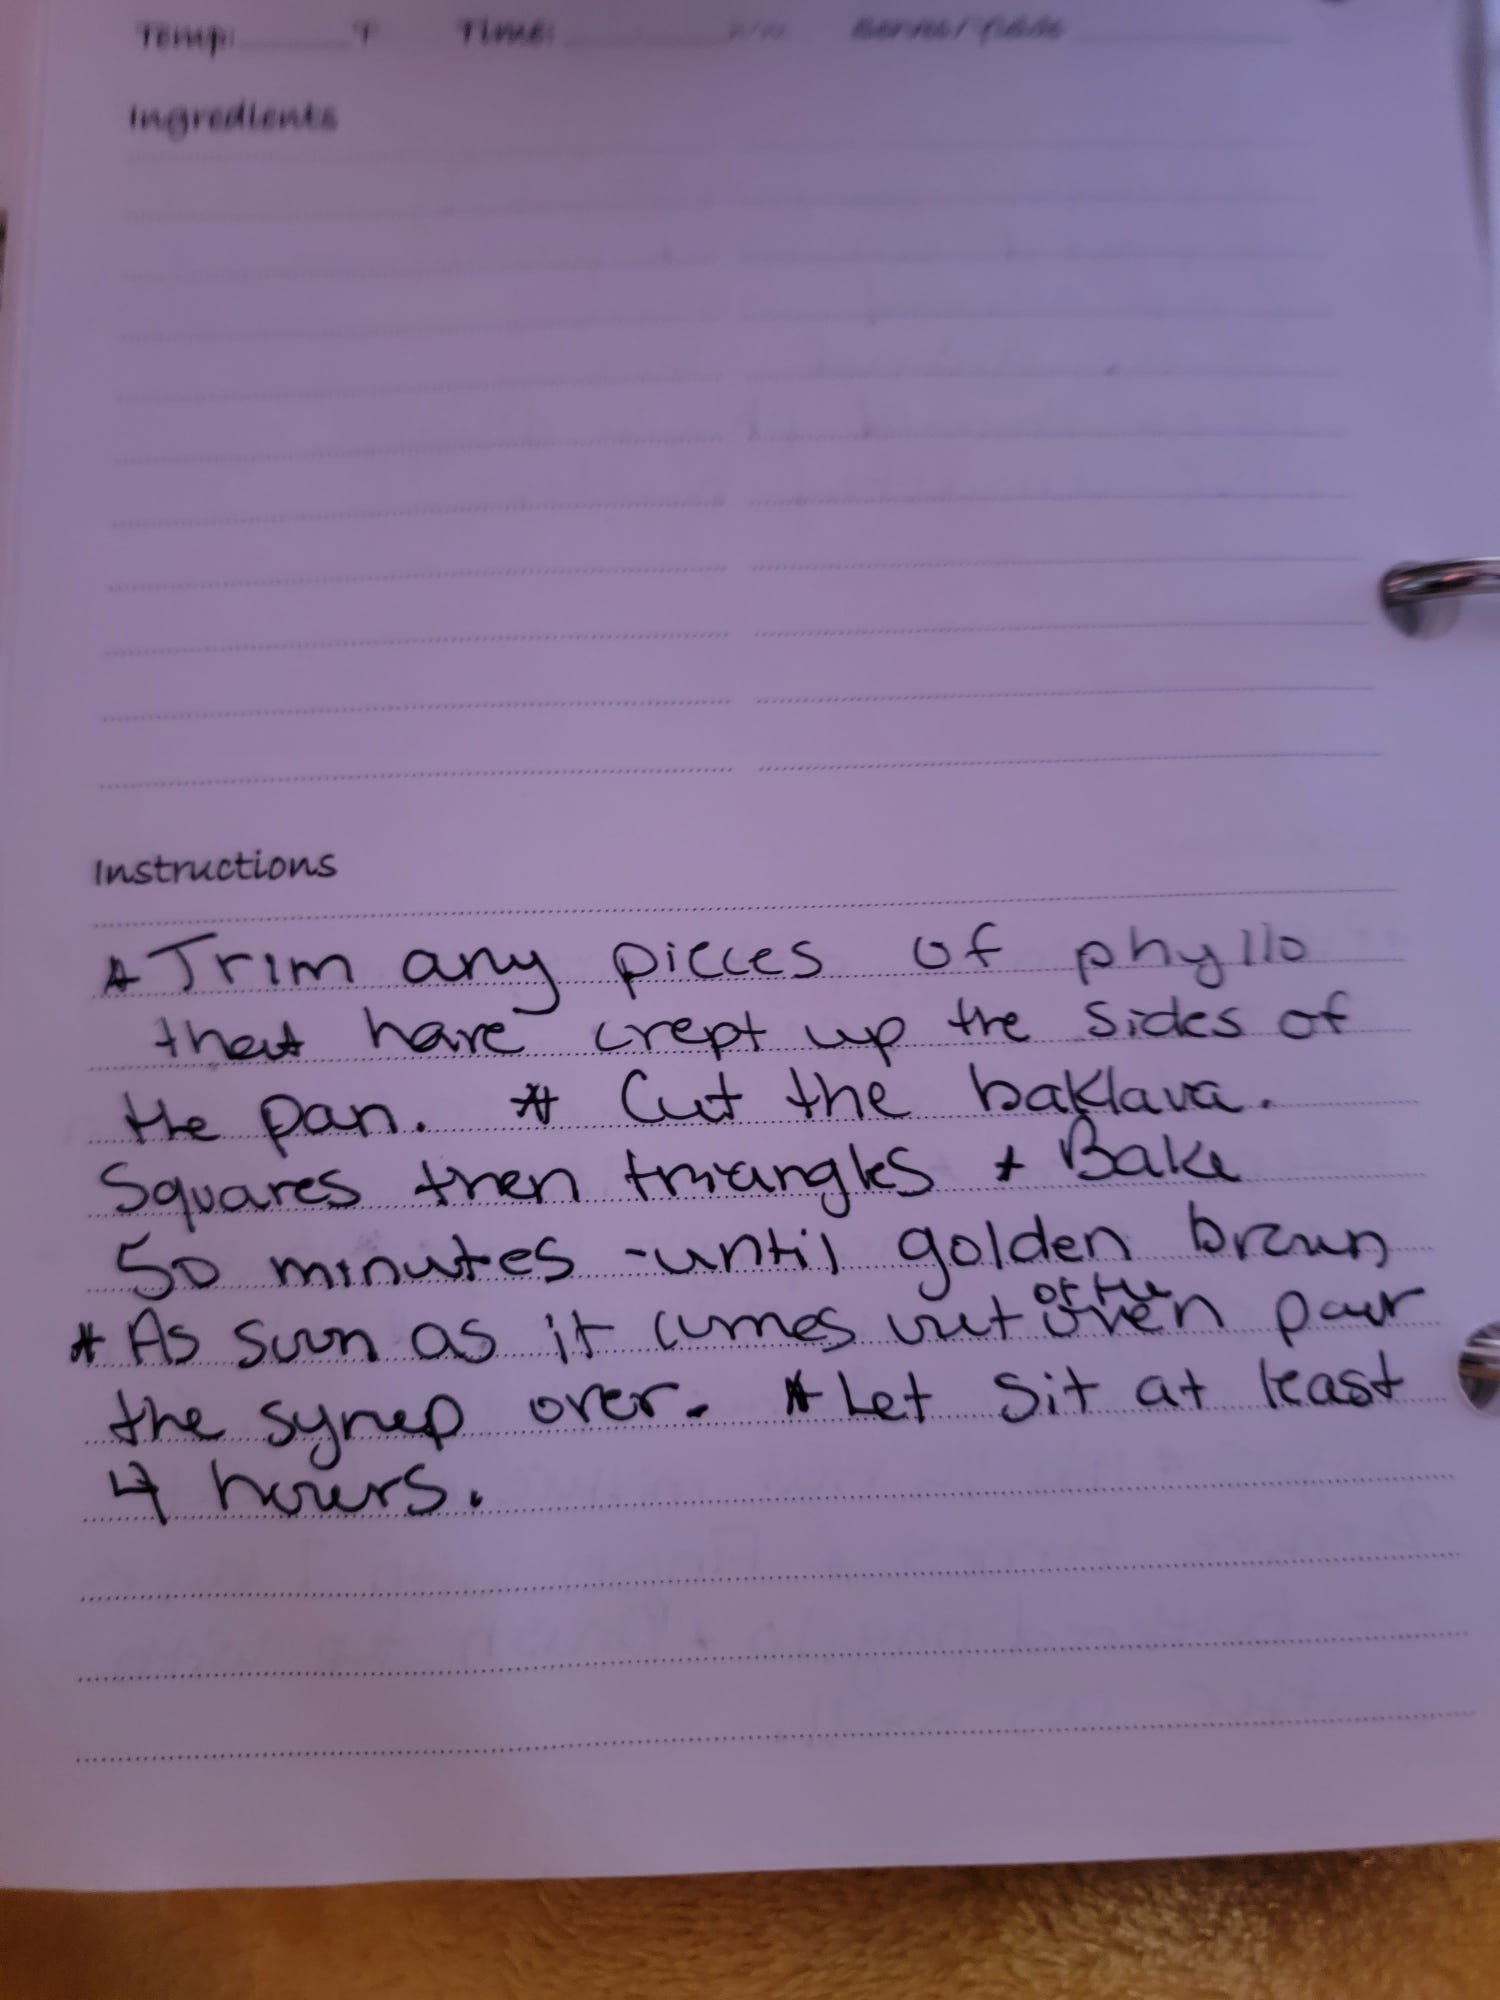 Temp: F Time:
Ingredients
Instructions
* Trim any pieces of phyllo
that have crept up the sides of
the pan. * Cut the baklava.
Squares then triangles * Bake
50 minutes - until golden brown
* As soon as it comes out of the oven pour
the syrup over. * Let sit at least
4 hours.